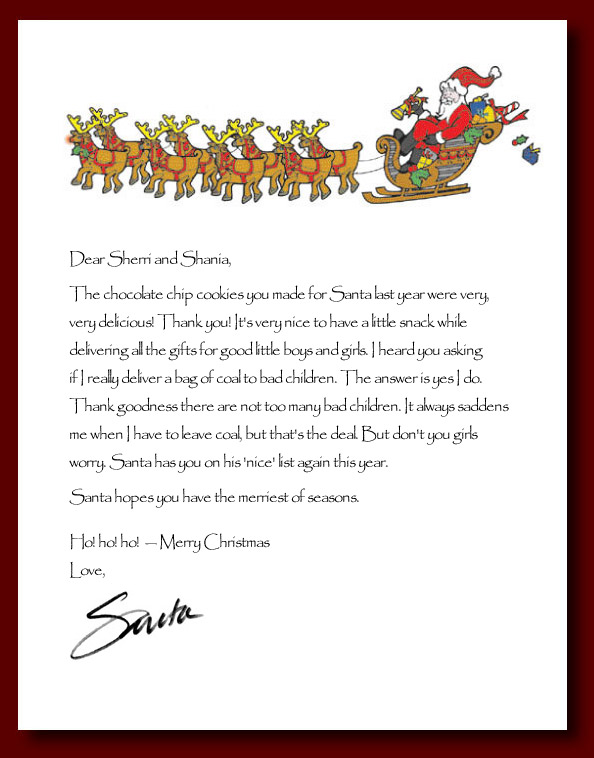 Dear Sherri and Shania,
The chocolate chip cookies you made for Santa last year were very,
very delicious! Thank you! It's very nice to have a little snack while
delivering all the gifts for good little boys and girls. I heard you asking
if I really deliver a bag of coal to bad children. The answer is yes I do.
Thank goodness there are not too many bad children. It always saddens
me when I have to leave coal, but that's the deal. But don't you girls
worry. Santa has you on his 'nice' list again this year.
Santa hopes you have the merriest of seasons.
Ho! ho! ho! — Merry Christmas
Love,
Santa